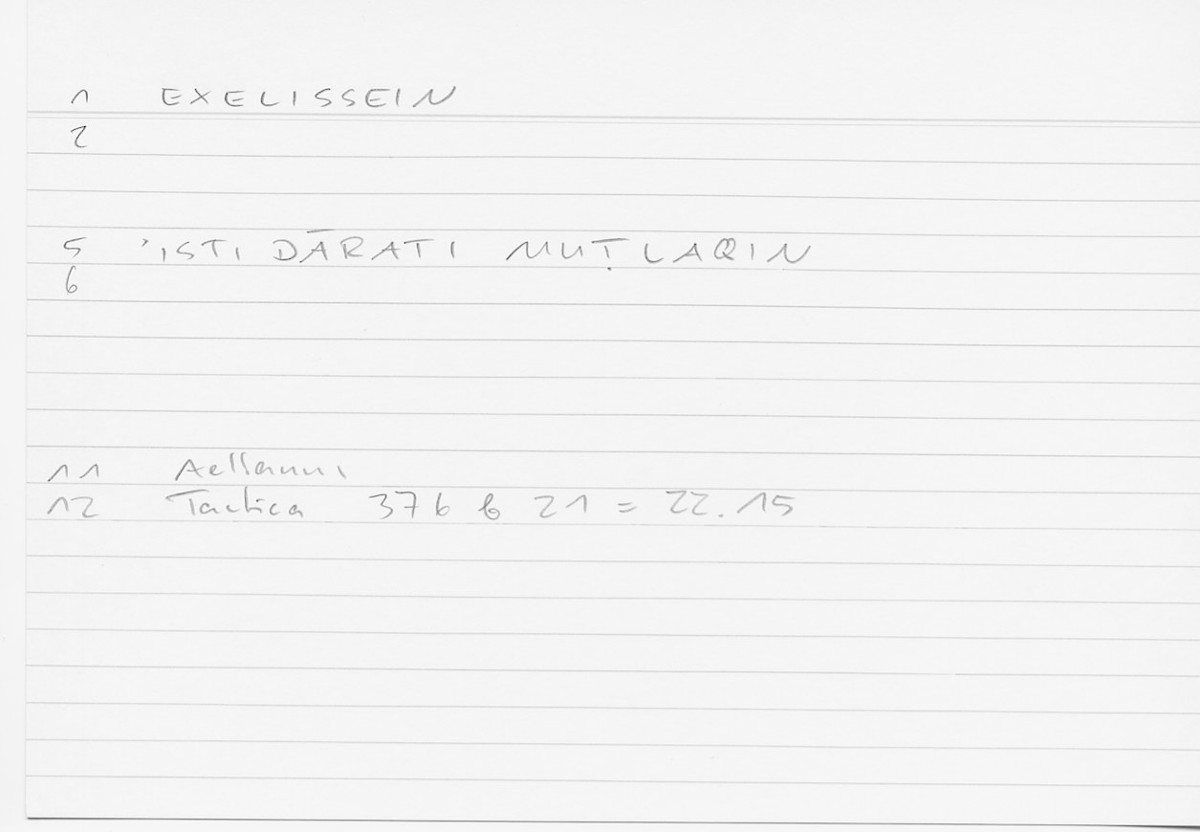 1 EXELISSEIN
2
5 'ISTI DĀRATI MUṬLAQIN
6
11 Aelianus
12 Tactica 376 b 21 = 22.15